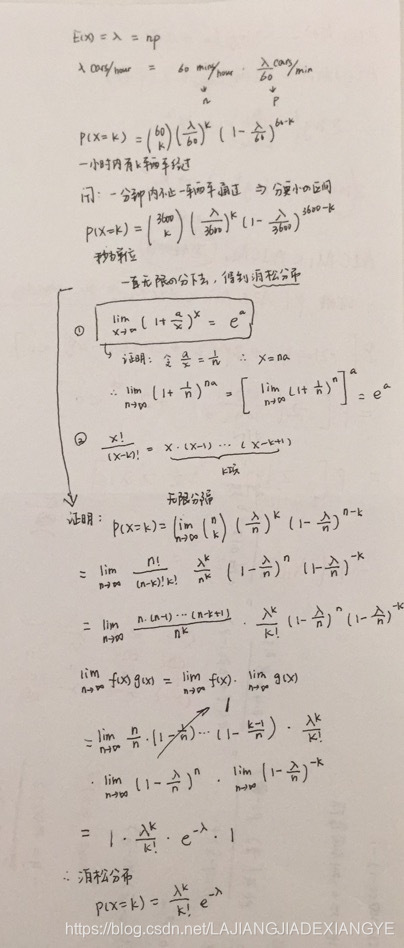 E(X) = λ = np
λ cars/hour = 60 mins/hour · λ/60 cars/min
↓ ↓
n p
P(X=k) = (60 k) (λ/60)^k (1-λ/60)^(60-k)
一小时内有k辆车经过
问: 一分钟内不止一辆车通过 ⇒ 分更小的区间
P(X=k) = (3600 k) (λ/3600)^k (1-λ/3600)^(3600-k)
秒为单位
一直无限的分下去, 得到泊松分布
① lim x→∞ (1+a/x)^x = e^a
证明: 令 a/x = 1/n ∴ x=na
∴ lim n→∞ (1+1/n)^(na) = [lim n→∞ (1+1/n)^n]^a = e^a
② x!/(x-k)! = x·(x-1) ··· (x-k+1)
k项
无限分隔
证明: P(X=k) = (lim n→∞ (n k) (λ/n)^k (1-λ/n)^(n-k)
= lim n→∞ n!/((n-k)!k!) λ^k/n^k (1-λ/n)^n (1-λ/n)^(-k)
= lim n→∞ n·(n-1)···(n-k+1)/n^k · λ^k/k! (1-λ/n)^n (1-λ/n)^(-k)
lim n→∞ f(x)g(x) = lim n→∞ f(x) · lim n→∞ g(x)
1
= lim n→∞ n/n · (1-1/n) ··· (1-(k-1)/n) · λ^k/k!
· lim n→∞ (1-λ/n)^n · lim n→∞ (1-λ/n)^(-k)
= 1 · λ^k/k! · e^(-λ) · 1
∴ 泊松分布
P(X=k) = λ^k/k! e^(-λ)
https://blog.csdn.net/LAJIANGJIADEXIANGYE